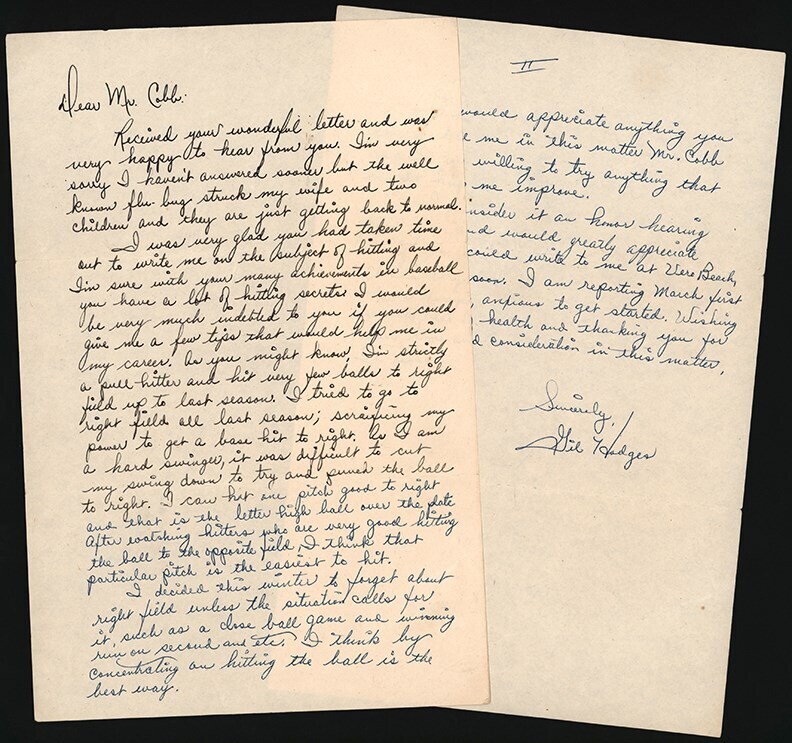 Dear Mr. Cobb:
Received your wonderful letter and was
very happy to hear from you. I'm very
sorry I haven't answered sooner but the well
known flu bug struck my wife and two
children and they are just getting back to normal.
I was very glad you had taken time
out to write me on the subject of hitting and
I'm sure with your many achievements in baseball
you have a lot of hitting secrets. I would
be very much indebted to you if you could
give me a few tips that would help me in
my career. As you might know, I'm strictly
a pull-hitter and hit very few balls to right
field up to last season. I tried to go to
right field all last season; scraificing my
power to get a base hit to right. As I am
a hard swinger, it was difficult to cut
my swing down to try and punch the ball
to right. I can hit one pitch good to right
and that is the letter high ball over the plate
After watching hitters who are very good hitting
the ball to the opposite field, I think that
particular pitch is the easiest to hit.
I decided this winter to forget about
right field unless the situation calls for
it, such as a close ball game and winning
run on second and etc. I think by
concentrating on hitting the ball is the
best way.
II
would appreciate anything you
me in this matter Mr. Cobb
willing to try anything that
me improve.
nsider it an honor hearing
nd would greatly appreciate
could write to me at Vero Beach,
soon. I am reporting March first
anxious to get started. Wishing
health and thanking you for
d consideration in this matter,
Sincerely,
Gil Hodges